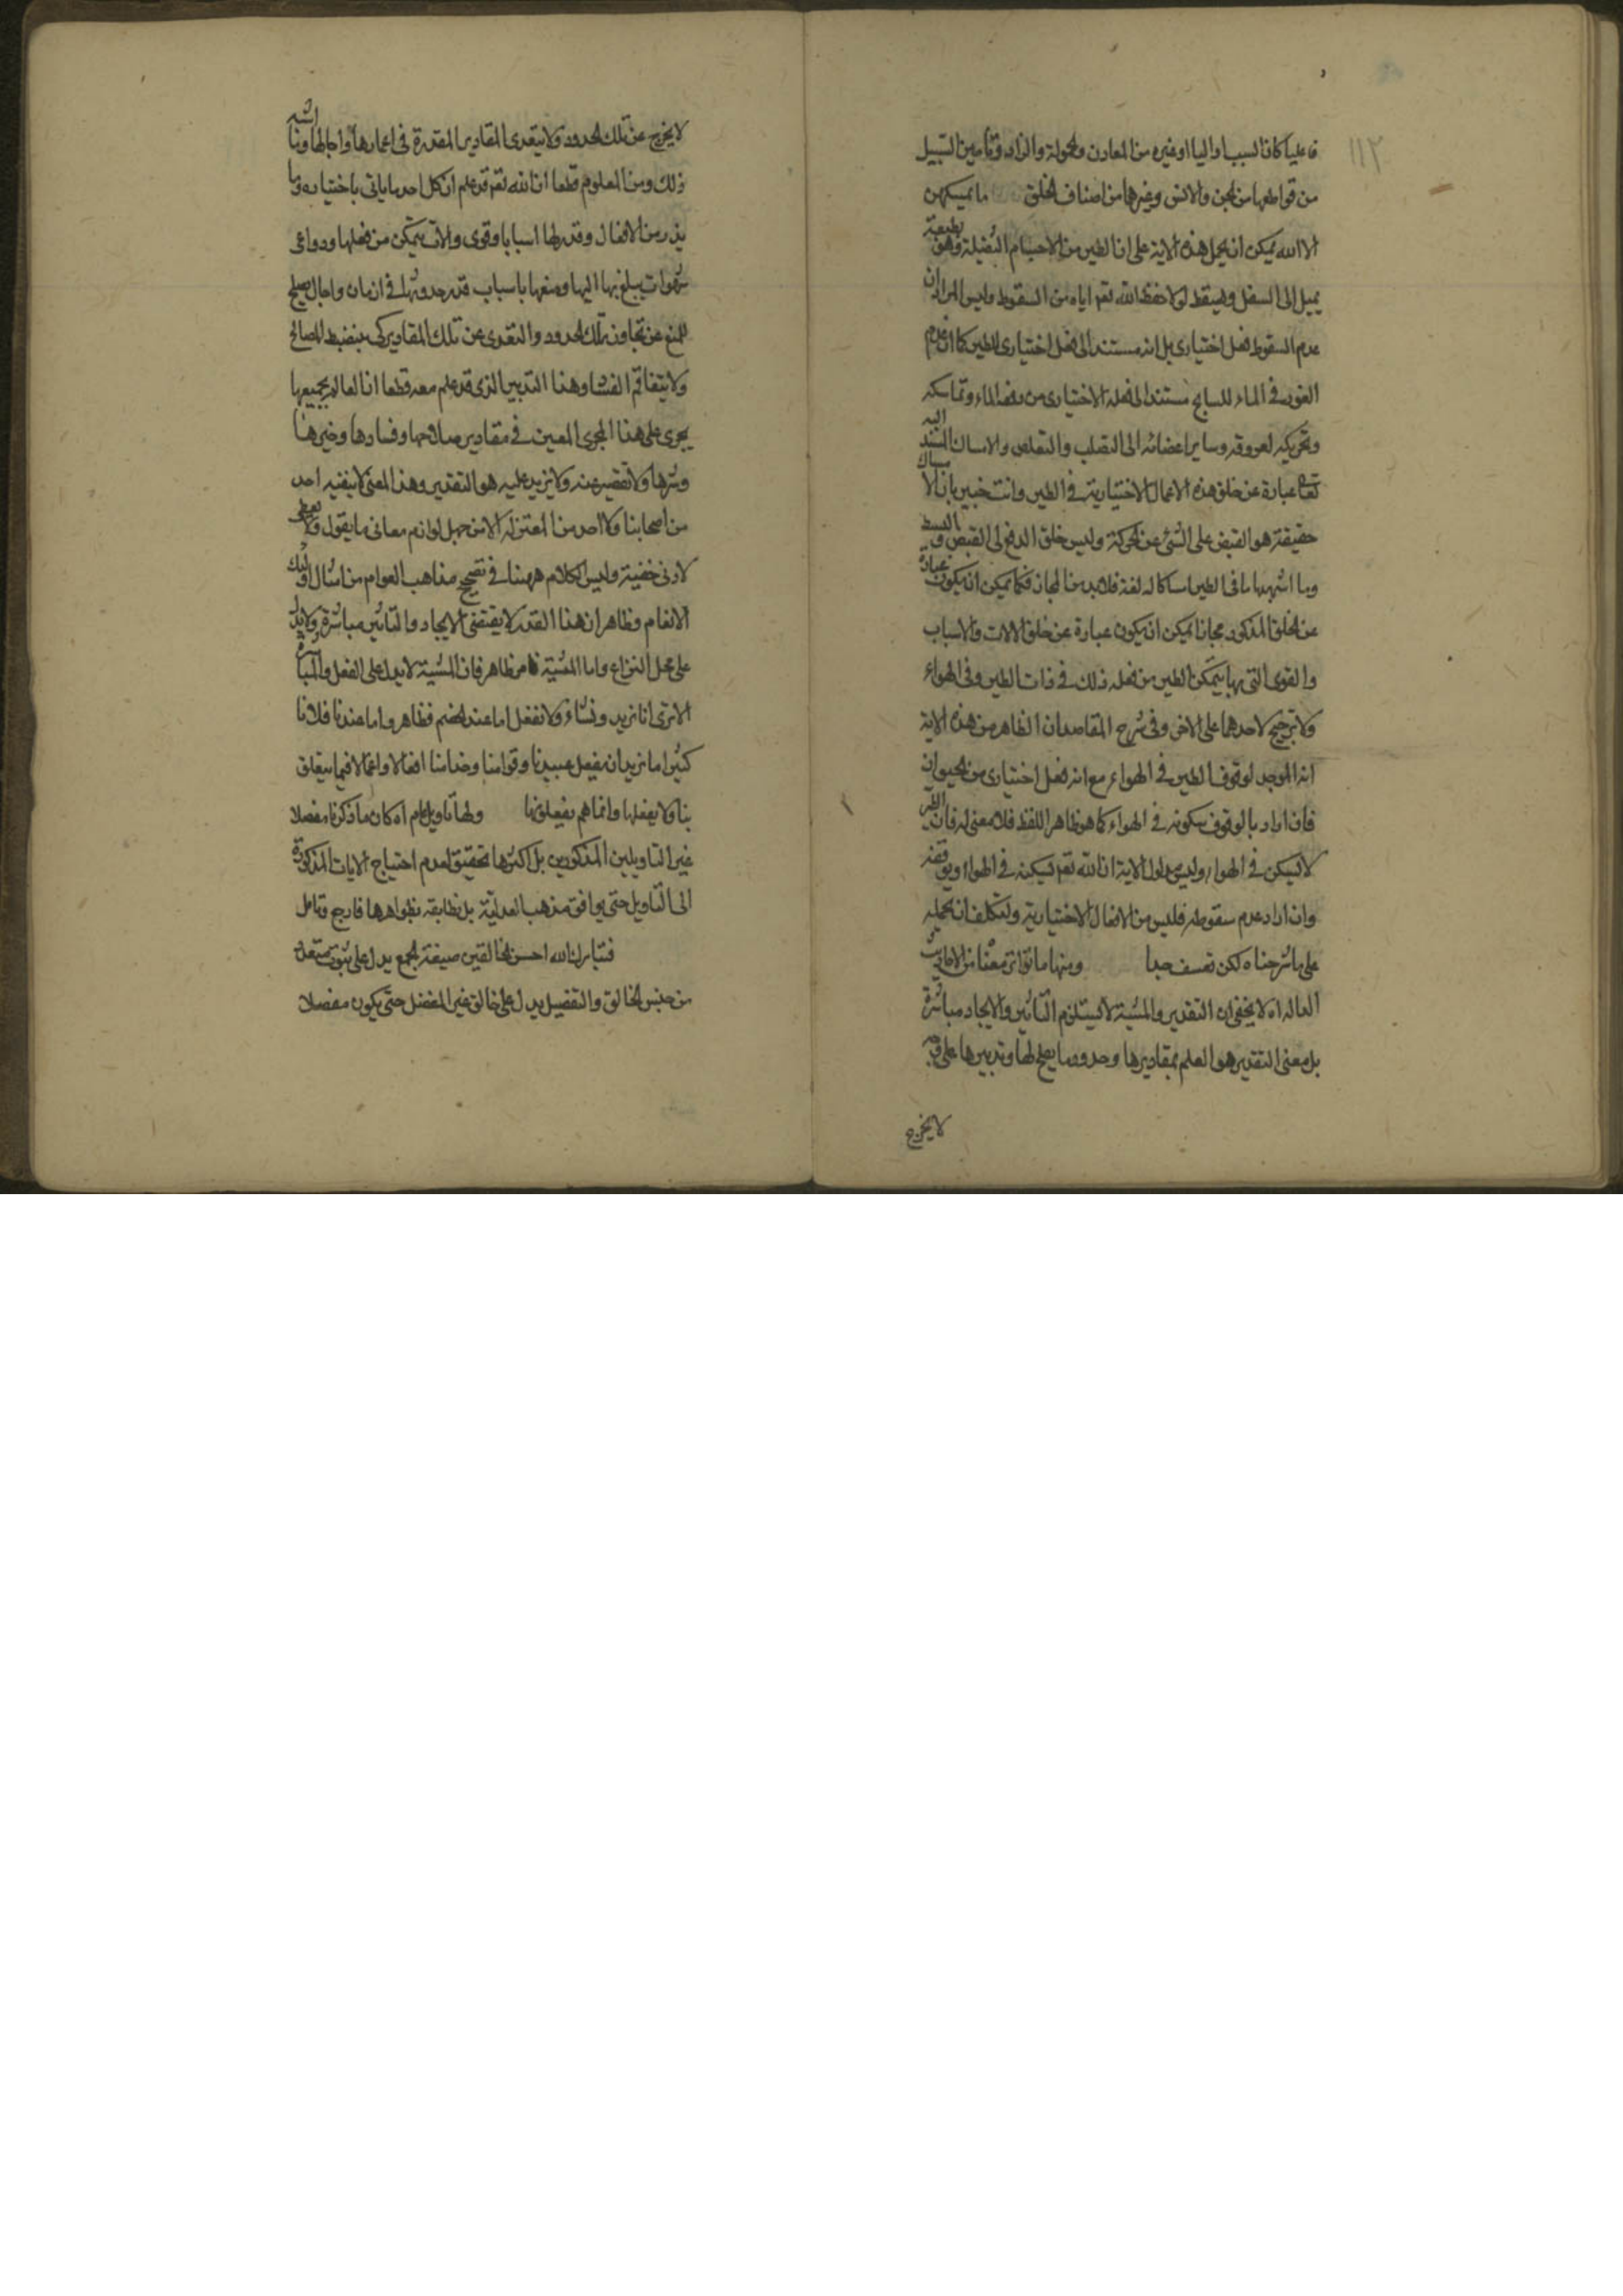 ١١٢
فاعليا كان السبب او اليا او غيره من المعاون والحمولة والزاد وتأمين السبيل
من قواطعها من الجن والانس وغيرها من اصناف الخلق ما يمسكهن
الا الله يمكن ان يحمل هذه الاية على ان الطير من الاجسام الثقيلة وهو بطبعه
يميل الى السفل ويسقط لولا حفظ الله تعم اياه من السقوط وليس المراد ان
عدم السقوط فعل اختيارى بل انه مستند الى فعل اختيارى للطير كما ان عدم
الغور فى الماء للسابح مستند الى فعله الاختيارى من دفع الماء وتماسكه
وتحريكه لعروقه وساير اعضائه الى التصلب والتقلص والامساك المسند اليه
تعالى عبارة عن خلق هذه الاعمال الاختيارية فى الطير وانت خبير بان الامساك
حقيقة هو القبض على الشئ عن الحركة وليس خلق الدفع الى القبض والبسط
وما اشبهها ما فى الطير امساكا له لغة فلا بد من المجاز فكما يمكن ان يكون عبارة
عن الخلق المذكور مجازا يمكن ان يكون عبارة عن خلق الالات والاسباب
والقوى التى بها يتمكن الطير من فعله ذلك فى ذات الطير وفى الهواء
ولا ترجيح لاحدهما على الاخر وفى شرح المقاصد ان الظاهر من هذه الاية
انه الموجد لوقوف الطير فى الهواء مع انه فعل اختيارى من الحيوان
فان اراد بالوقوف سكونه فى الهواء كما هو ظاهر اللفظ فلا معنى له فان الطير
لا يسكن فى الهواء وليس مدلول الاية ان الله تعم يسكنه فى الهواء ويوقفه
وان اراد عدم سقوطه فليس من الافعال الاختيارية وليتكلف ان يحمله
على ما شرحناه لكن تعسف جدا ومنها ما تواتر معناه من الاحاديث
العالم اه لا يخفى ان التقدير والمشية لا يستلزم التاثير والايجاد مباشرة
بل معنى التقدير هو العلم بمقاديرها وحدود ما يصلح لها وتدبيرها على وجه
لا يخرج
لا يخرج عن تلك الحدود ولا يتعدى المقادير المقدرة فى اعمارها واجالها وما اشبه
ذلك ومن المعلوم قطعا ان الله تعم قد علم ان كل احد ما ياتى باختياره وما
يذر من الافعال وقدر لها اسبابا وقوى والات يتمكن من فعلها ودواعى
شهوات يبلغ بها اليها ومنعها باسباب قدر حدوثها فى ازمان واجال يصلح
للمنع عن تجاوز تلك الحدود والتعدى عن تلك المقادير كى ينضبط المصالح
ولا يتفاقم الفساد وهذا التدبير الذى قد علم معه قطعا ان العالم بجميعها
يجرى على هذا المجرى المعين فى مقادير صلاحها وفسادها وخيرها
وشرها ولا تقصير عنه ولا يزيد عليه هو التقدير وهذا المعنى لا ينفيه احد
من اصحابنا ولا احد من المعتزلة الا من جهل لوازم معانى ما يقول ولا تعطى
لادنى خفية وليس الكلام ههنا فى تصحيح مذاهب العوام من امثال اولئك
الانعام وظاهر ان هذا القدر لا يقتضى الايجاد والتاثير مباشرة ولا يدل
على محل النزاع واما المشية فامر ظاهر فان المشية لا يدل على الفعل والمباشرة
الا ترى انا نريد ونشاء ولا نفعل اما عند الخصم فظاهر واما عندنا فلانا
كثيرا ما نريد ان يفعل عبيدنا وقوامنا وخدامنا افعالا واعمالا فيما يتعلق
بنا ولا يفعلها وانما هم يفعلونها ولها تاويل عام اه كان ما ذكرنا مفصلا
غير التاويلين المذكورين بل اكثرها تحقيق لعدم احتياج الايات المذكورة
الى التاويل حتى يوافق مذهب العدلية بل تطابقه بظواهرها فارجع وتامل
فتبارك الله احسن الخالقين صيغة الجمع يدل على ثبوت متعدد
من جنس الخالق والتفضيل يدل على خالق غير المفضل حتى يكون مفضلا